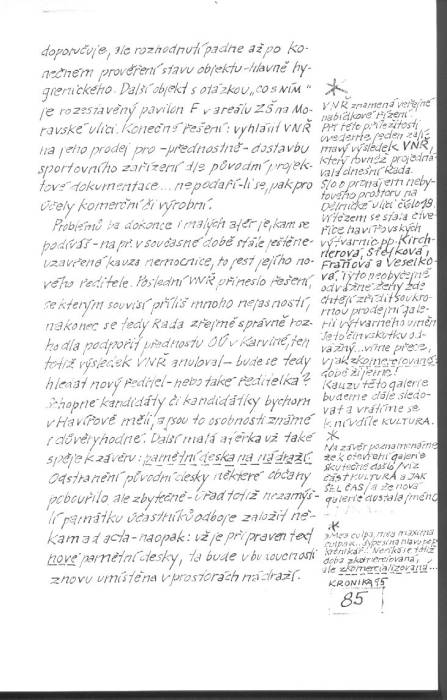 doporučuje, ale rozhodnutí padne až po ko-
nečném prověření stavu objektu - hlavně hy-
gienického. Další objekt s otázkou "CO S NÍM"
je rozestavěný pavilon F v areálu ZŠ na Mo-
ravské ulici. Konečné řešení: vyhlásit VNŘ
na jeho prodej pro - přednostně - dostavbu
sportovního zařízení dle původní projek-
tové dokumentace... nepodaří-li se, pak pro
účely komerční či výrobní.
Problémů ba dokonce i malých afér je, kam se
podíváš - např. v současné době stále ještě ne-
uzavřená kauza nemocnice, to jest jejího no-
vého ředitele. Poslední VNŘ přineslo řešení,
se kterým souvisí příliš mnoho nejasností,
nakonec se tedy Rada zřejmě správně roz-
hodla podpořit přednostu OÚ v Karviné, ten
totiž výsledek VNŘ anuloval - bude se tedy
hledat nový ředitel - nebo také ředitelka?
Schopné kandidáty či kandidátky bychom
v Havířově měli, a jsou to osobnosti známé
i důvěryhodné. Další malá aférka už také
spěje k závěru: pamětní deska na nádraží.
Odstranění původní desky některé občany
pobouřilo ale zbytečně - Úřad totiž nezamýš-
lí památku účastníků odboje založit ně-
kam ad acta - naopak: už je připraven text
nové pamětní desky, ta bude v budoucnosti
znovu umístěna v prostorách nádraží.
*
VNŘ znamená veřejné
nabídkové řízení.
Při této příležitosti
uvedeme jeden zají-
mavý výsledek VNŘ,
který rovněž projedná-
vala dnešní Rada.
Šlo o pronájem neby-
tového prostoru na
Dělnické ulici číslo 19.
Vítězem se stala čtve-
řice havířovských
výtvarnic pp. Kirch-
nerová, Štefková,
Franová a Veselko-
vá. Tyto neobyčejně
odvážné ženy zde
chtějí zřídit soukro-
mou prodejní gale-
rii výtvarného umění.
Je to čin vskutku od-
vážný... víme přece,
v jak zkomercionované
době žijeme!
Kauzu této galerie
budeme dále sledo-
vat a vrátíme se
k ní v díle KULTURA.
*
Na závěr poznamenáme
že k otevření galerie
skutečně došlo / viz
část KULTURA a JAK
ŠEL ČAS / a že nová
galerie dostala jméno
*
Mea culpa, mea maxima
culpa...
doba zkomerciovaná,
ale zkomercializovaná...
KRONIKA 95
85